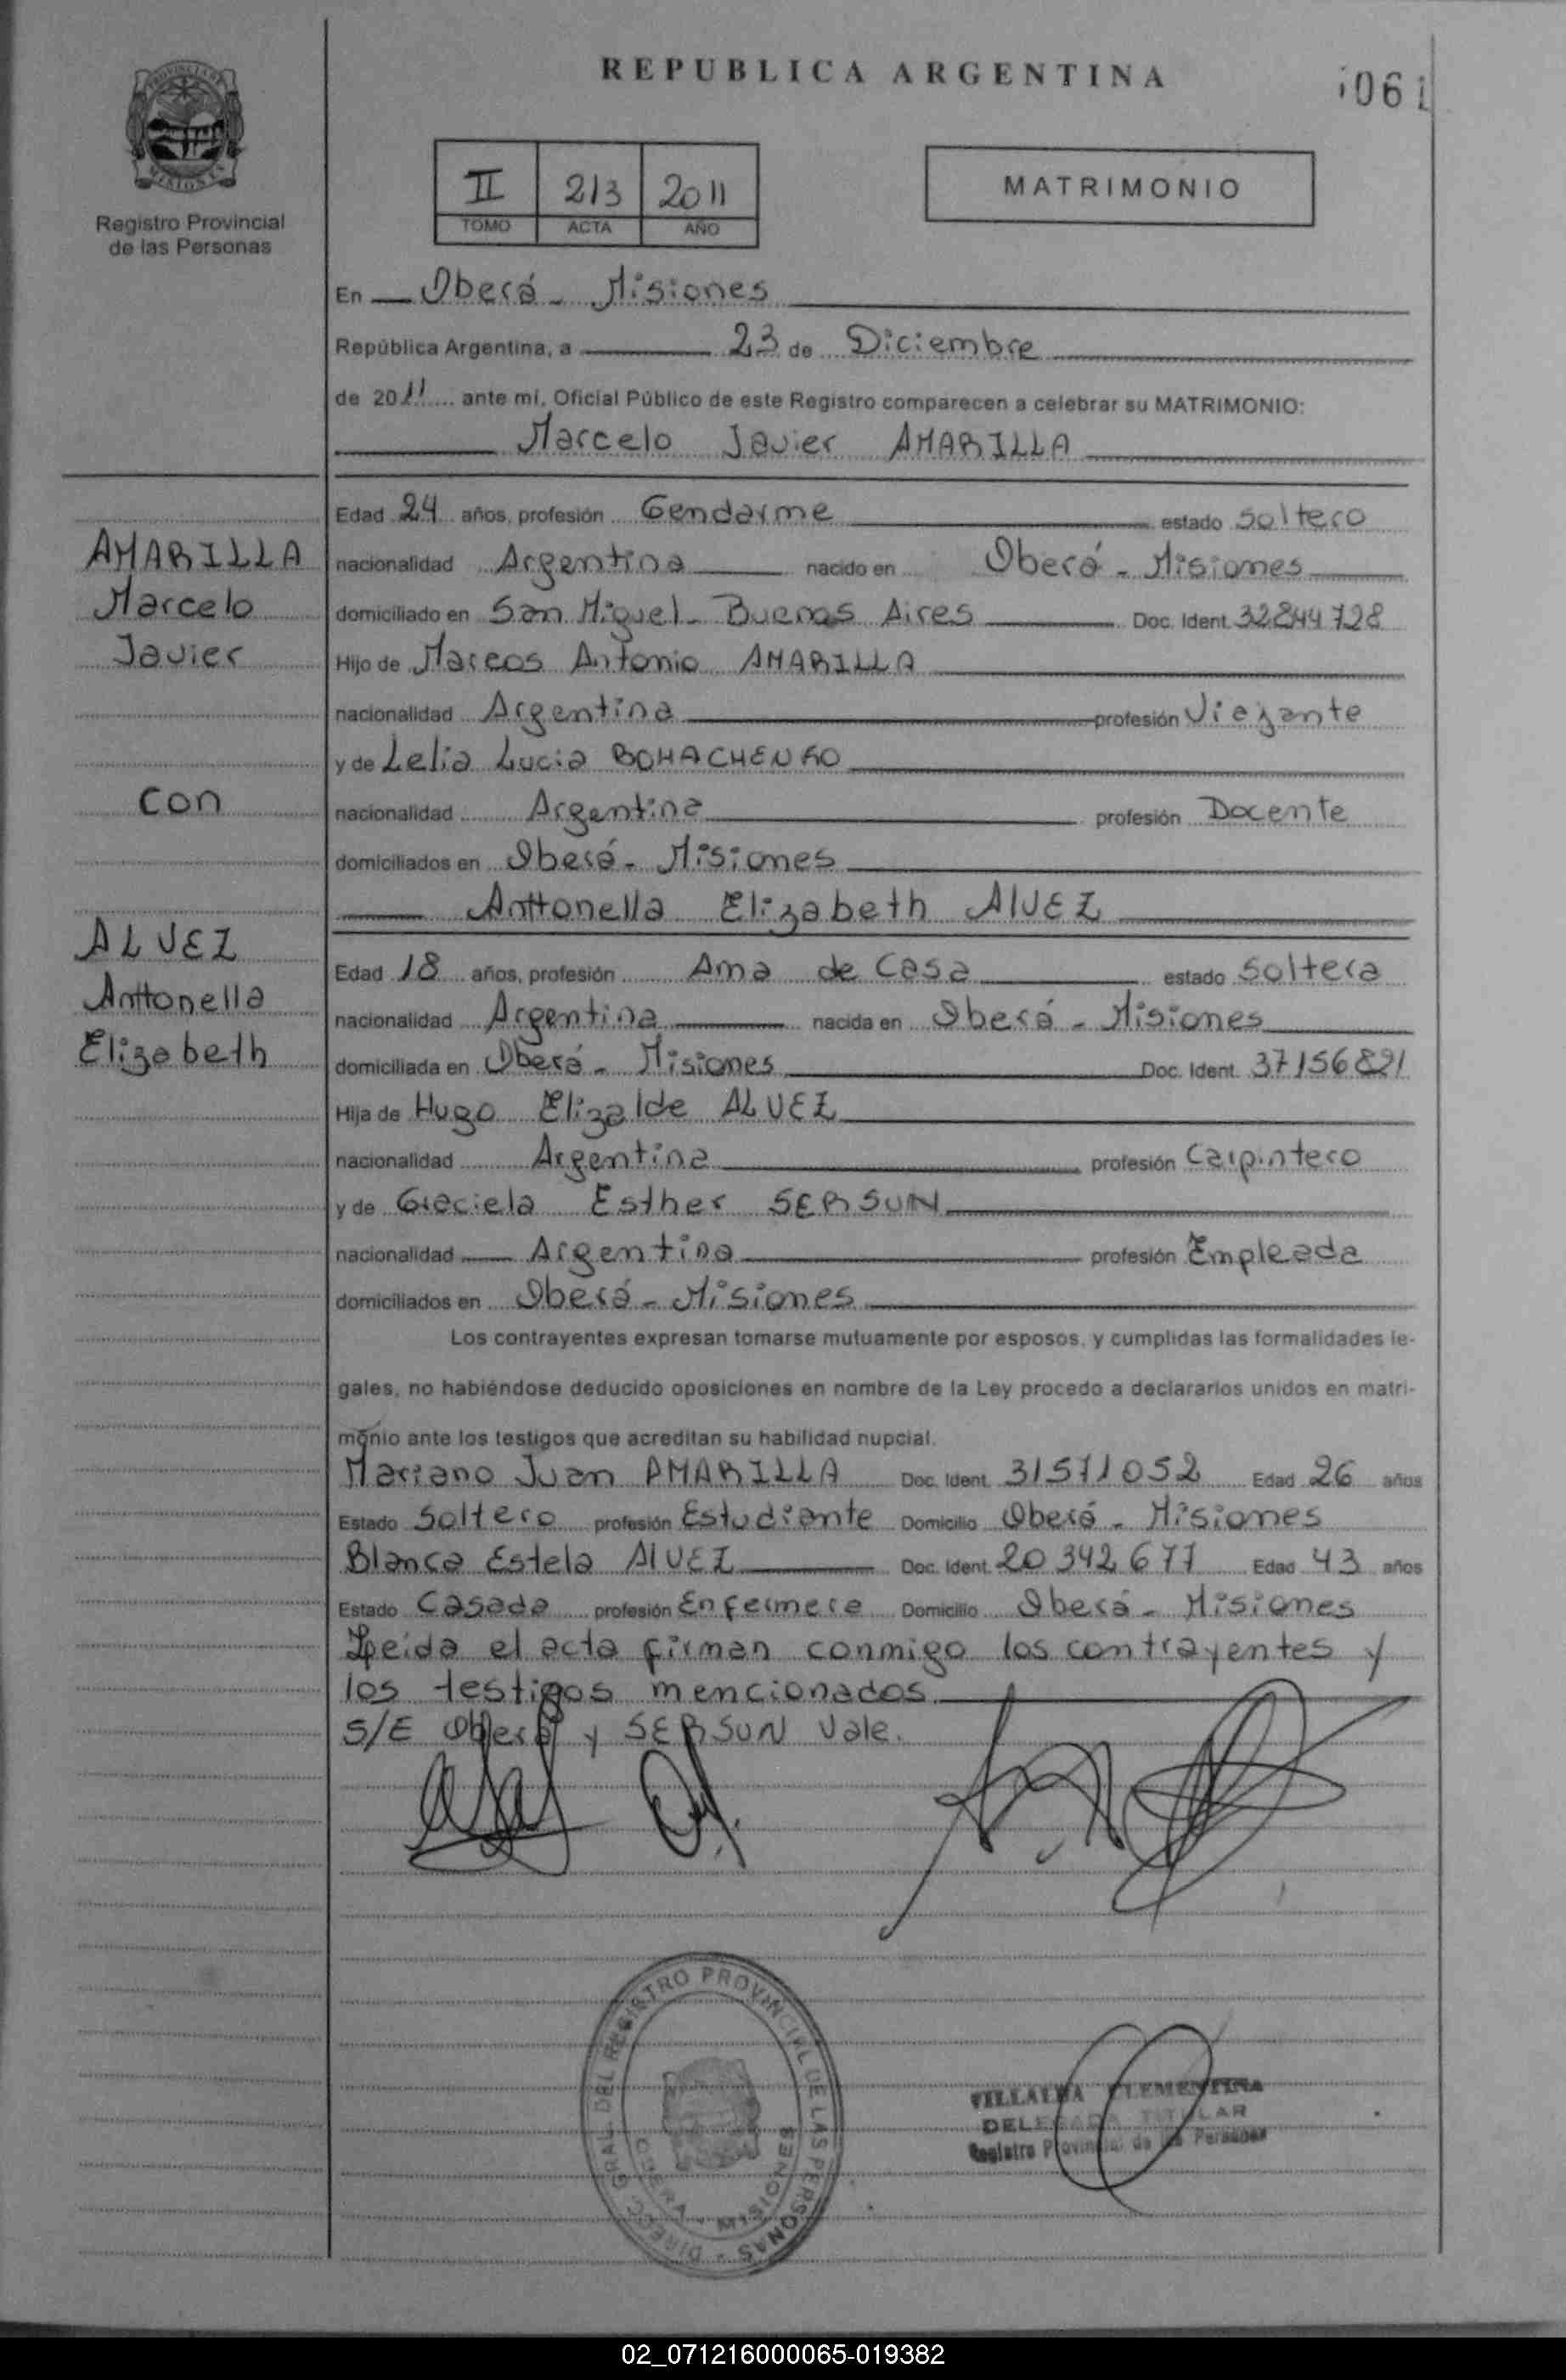 REPUBLICA ARGENTINA
061
PROVINCIA DE
MISIONES
Registro Provincial
de las Personas
II 213 2011
TOMO ACTA AÑO
MATRIMONIO
En Oberá - Misiones
República Argentina, a 23 de Diciembre
de 2011 ante mí, Oficial Público de este Registro comparecen a celebrar su MATRIMONIO:
Marcelo Javier AMARILLA
Edad 24 años, profesión Gendarme estado Soltero
AMARILLA
nacionalidad Argentina nacido en Oberá - Misiones
Marcelo
domiciliado en San Miguel - Buenos Aires Doc. Ident. 32844728
Javier
Hijo de Marcos Antonio AMARILLA
nacionalidad Argentina profesión Viajante
y de Lelia Lucia BOHACHENKO
con
nacionalidad Argentina profesión Docente
domiciliados en Oberá - Misiones
Anttonella Elizabeth AlVEZ
ALVEZ
Edad 18 años, profesión Ama de Casa estado Soltera
Anttonella
nacionalidad Argentina nacida en Oberá - Misiones
Elizabeth
domiciliada en Oberá - Misiones Doc. Ident. 37156821
Hija de Hugo Elizalde ALVEZ
nacionalidad Argentina profesión Carpintero
y de Graciela Esther SERSUN
nacionalidad Argentina profesión Empleada
domiciliados en Oberá - Misiones
Los contrayentes expresan tomarse mutuamente por esposos, y cumplidas las formalidades le-
gales, no habiéndose deducido oposiciones en nombre de la Ley procedo a declararlos unidos en matri-
monio ante los testigos que acreditan su habilidad nupcial.
Mariano Juan AMARILLA Doc. Ident. 31571052 Edad 26 años
Estado Soltero profesión Estudiante Domicilio Oberá - Misiones
Blanca Estela AlVEZ Doc. Ident. 20342677 Edad 43 años
Estado Casada profesión Enfermera Domicilio Oberá - Misiones
Leida el acta firman conmigo los contrayentes y
los testigos mencionados
S/E Oberá y SERSUN Vale.
DIRECC. GRAL. DEL REGISTRO PROVINCIAL DE LAS PERSONAS
OBERA - MISIONES
VILLALBA CLEMENTINA
DELEGADA TITULAR
Registro Provincial de las Personas
02_071216000065-019382